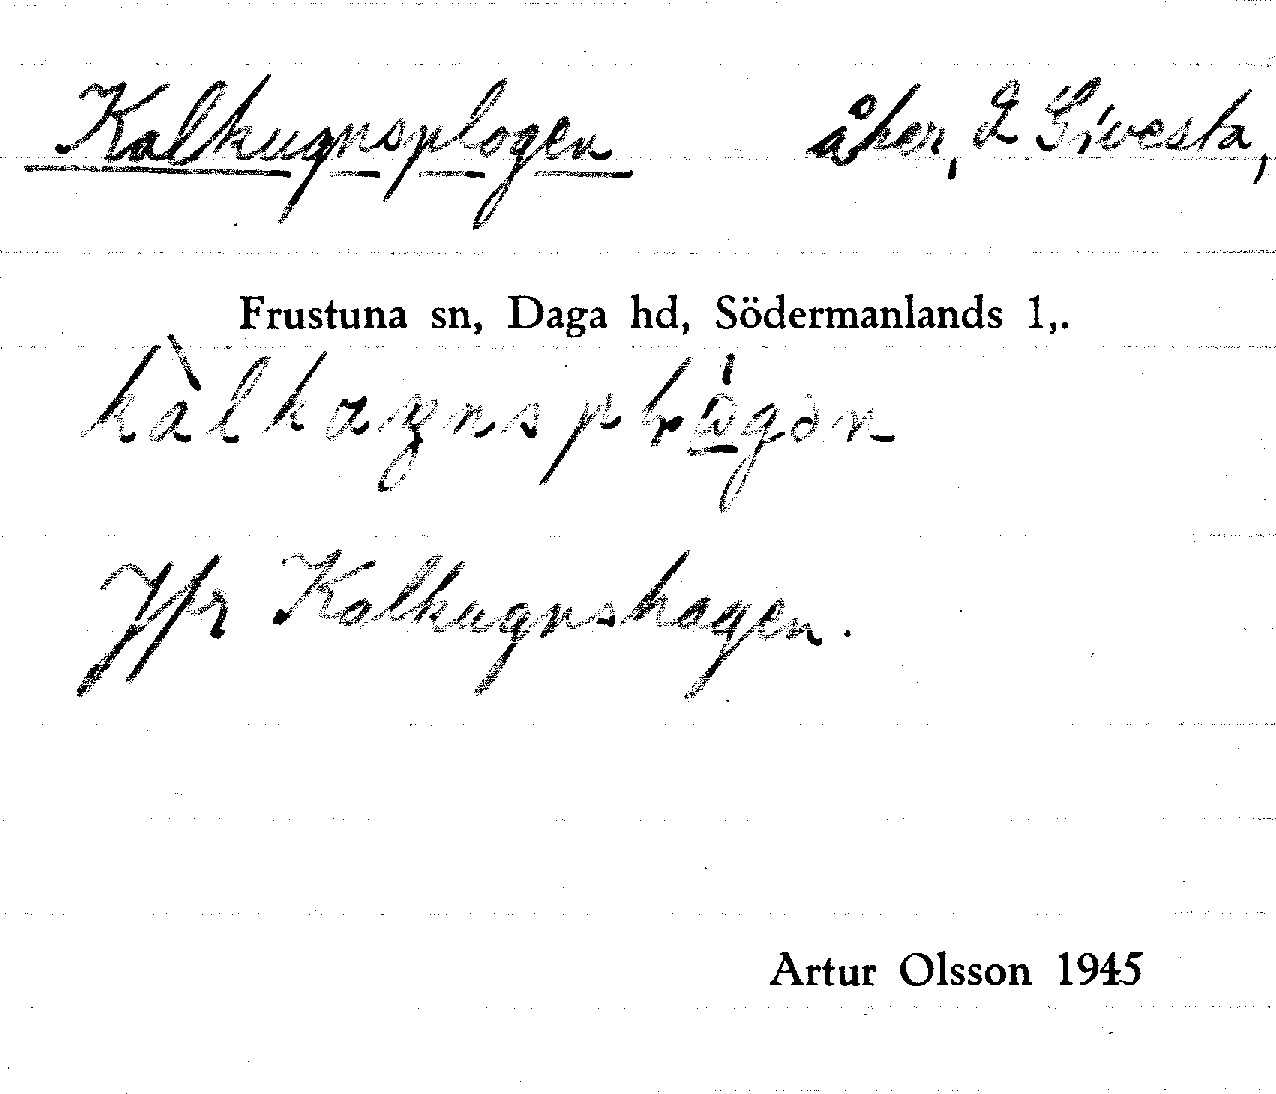 Kalkugnsplogen åker, Sivesta,
Frustuna sn, Daga hd, Södermanlands l,.
Jfr Kalkugnshagen.
Artur Olsson 1945